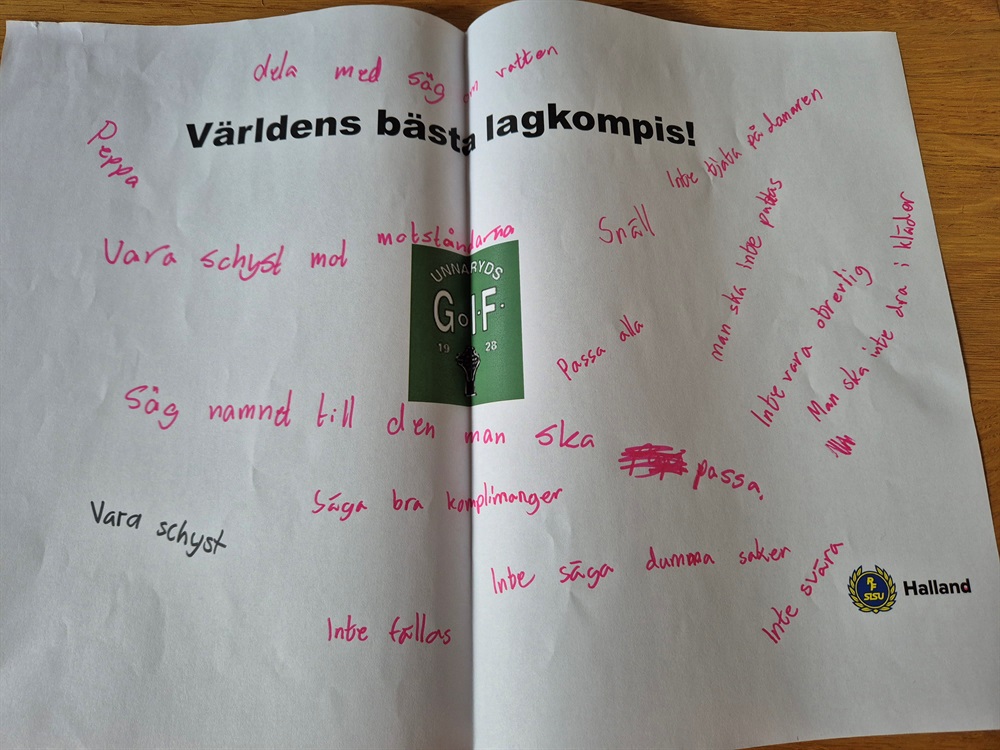 dela med säg om vatten
Världens bästa lagkompis!
Peppa
Inte tjata på domaren
Vara schyst mot motståndarna
Snäll
man ska inte puttas
Man ska inte dra i kläder
UNNARYDS
GoI.F.
19 28
Passa alla
Inte vara obrerlig
Säg namnet till den man ska passa.
Säga bra komplimanger
Vara schyst
Inte säga dumma saker
Inte svära
RF
SISU
Halland
Inte fällas